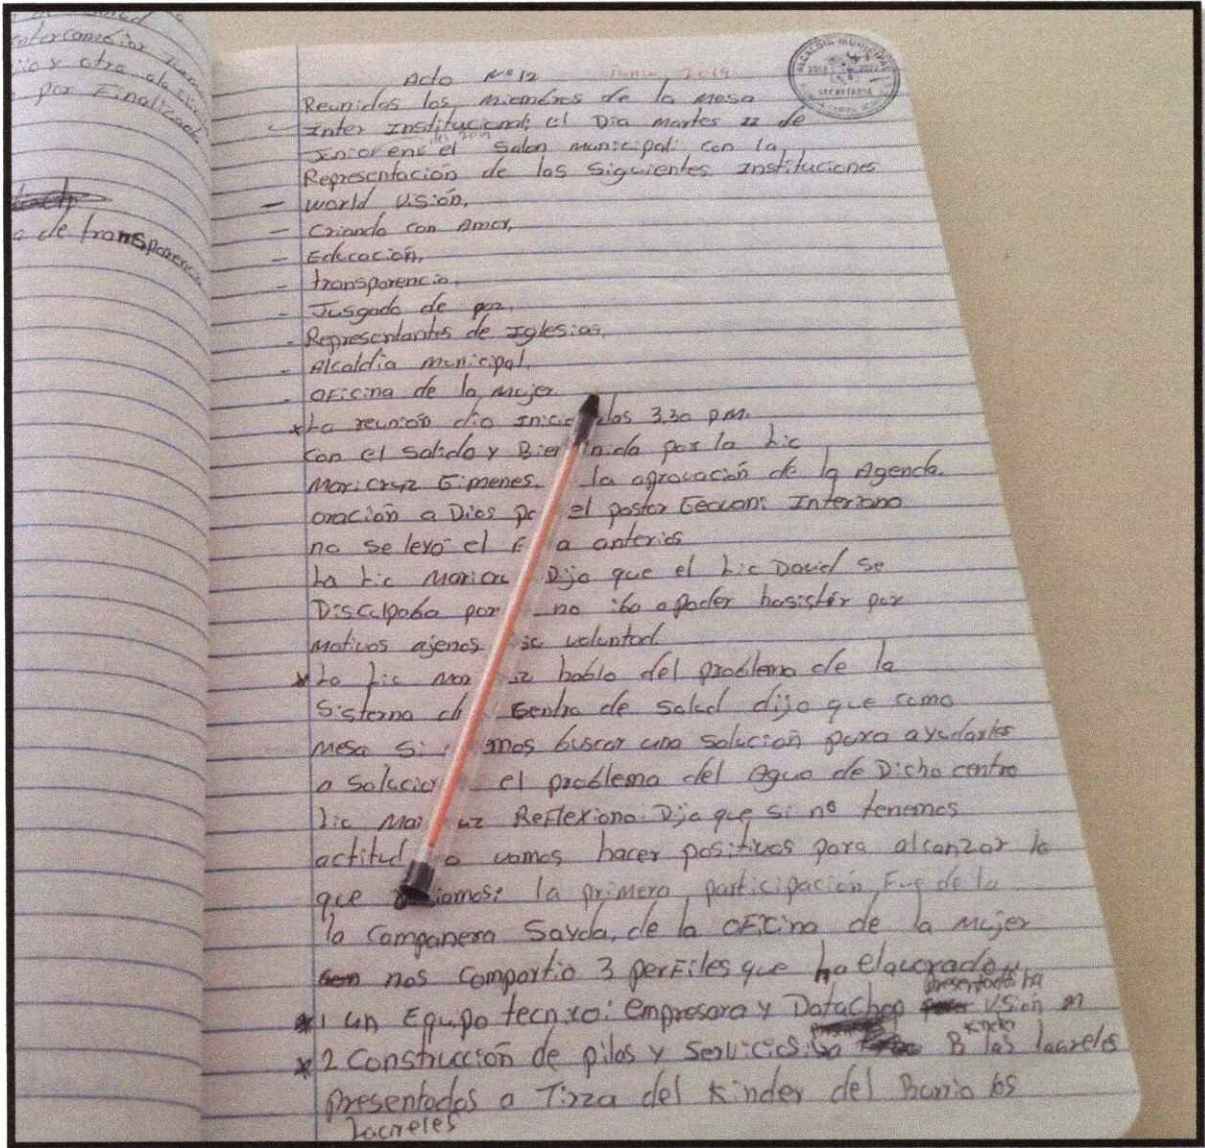 intercambiar
y otra
por Finalizada
de transparencia
Acta Nº 12 Junio, 2019
ALCALDIA MUNICIPAL
SECRETARIA
Reunidos los, miembros de la mesa
Inter Institucional; el Dia martes 22 de
el Salon municipal: con la,
Representación de las Siguientes Instituciones
- World Visión,
- Criando con Amor,
- Educación,
- transparencia,
- Jusgado de paz,
- Representantes de Iglesias,
- Alcaldia municipal,
- OFicina de la mujer
* La reunión dio Inicio las 3,30 p.m.
con el Saludo y por la Lic
Maricruz Gimenes. la aprovación de la Agenda.
oración a Dios el pastor Geovani Interiano
no se leyó el a anterior
La Lic Dijo que el Lic David se
Disculpaba por no iba a poder hasistir por
motivos ajenos su voluntad.
* La Lic hablo del problema de la
Sisterna Sentro de Salud dijo que como
mesa buscar una solución para ayudarles
a el problema del Agua de Dicho centro
Lic Reflexiono: Dijo que si no tenemos
actitud vamos hacer positivos para alcanzar lo
que la primera participación, Fue de la
la Compañera Sayda, de la OFicina de la mujer
nos Compartio 3 perFiles que ha elavorado,
*1 un Equipo tecnico: empresora y Datachop presentada ha Visión m
*2 Construcción de pilas y Servicios: Kinder B las laureles
presentados a Tirza del Kinder del Barrio los
Laureles